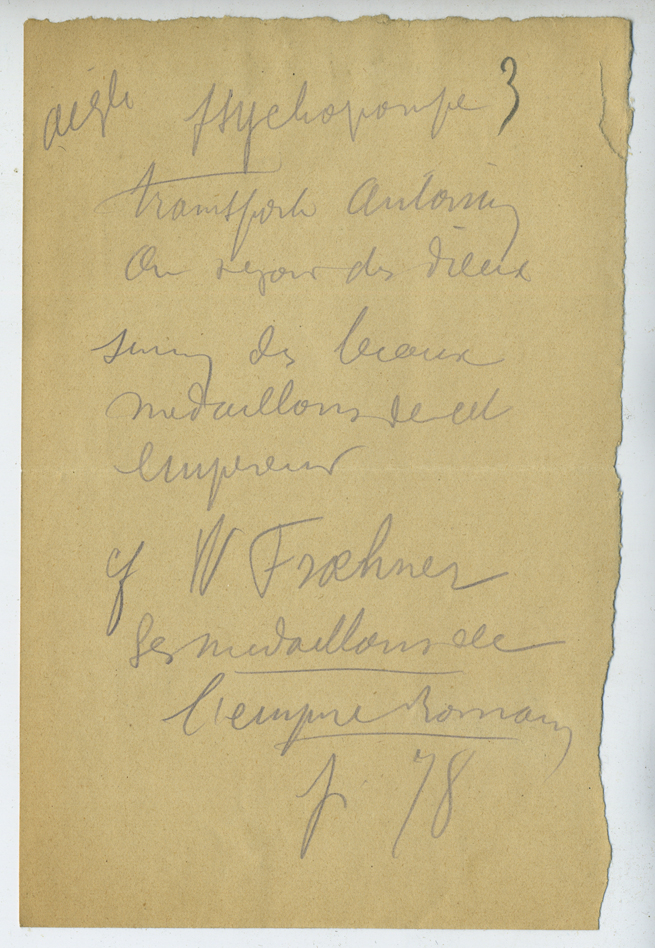 aigle psychopompe 3
transporte Antonin
au sejour des dieux
sur des beaux
medaillons de cet
empereur
cf W Frœhner
Les medaillons de
l'empire Romain
p 78